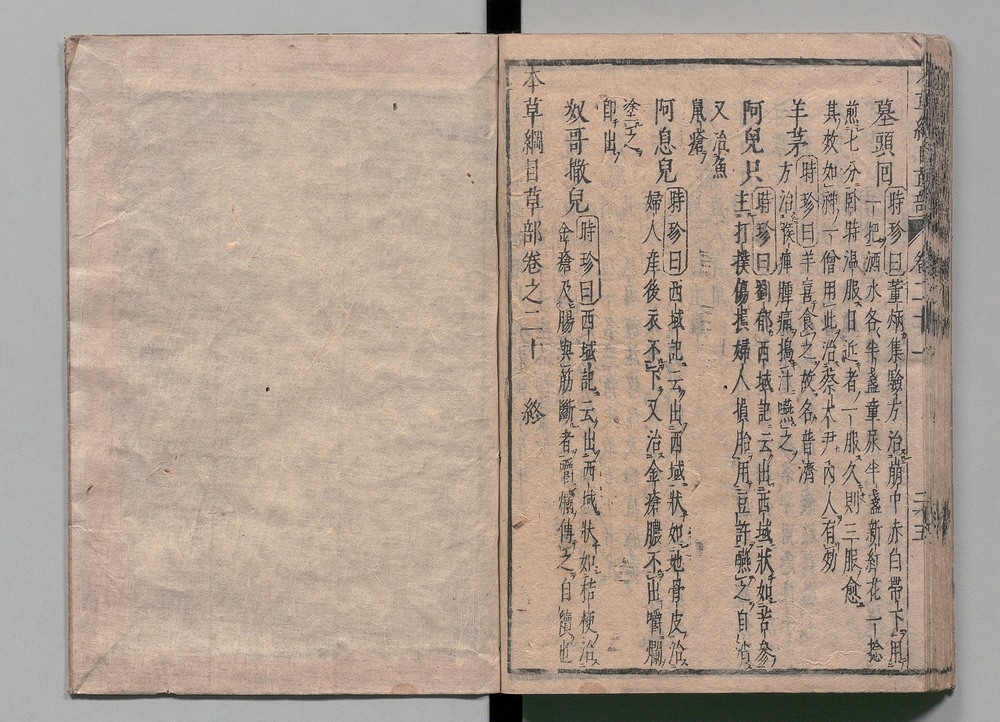 墓頭回 時珍曰董炳集驗方治崩中赤白帶下用
一把酒水各半盞童尿半盞新紅花一捻
煎七分臥時溫服日近者一服久則三服愈
其效如神一僧用此治蔡大尹內人有効
羊茅 時珍曰羊喜食之故名普濟
方治喉痺腫痛搗汁嚥之
阿兒只 時珍曰劉郁西域記云出西域狀如苦參
主打撲傷損婦人損胎用豆許嚥之自消
又治魚
鼠瘡
阿息兒 時珍曰西域記云出西域狀如地骨皮治
婦人產後衣不下又治金瘡膿不出嚼爛
塗之
即出
奴哥撒兒 時珍曰西域記云出西域狀如桔梗治
金瘡及腸與筋斷者嚼爛傅之自續也
本草綱目草部卷之二十 終